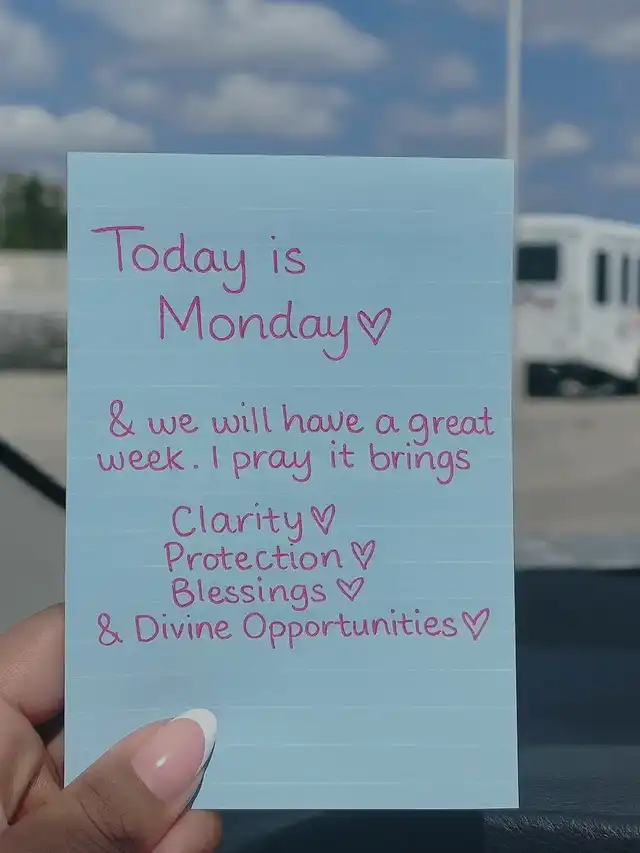 Today is
Monday♡
& we will have a great
week. I pray it brings
Clarity♡
Protection♡
Blessings♡
& Divine Opportunities♡